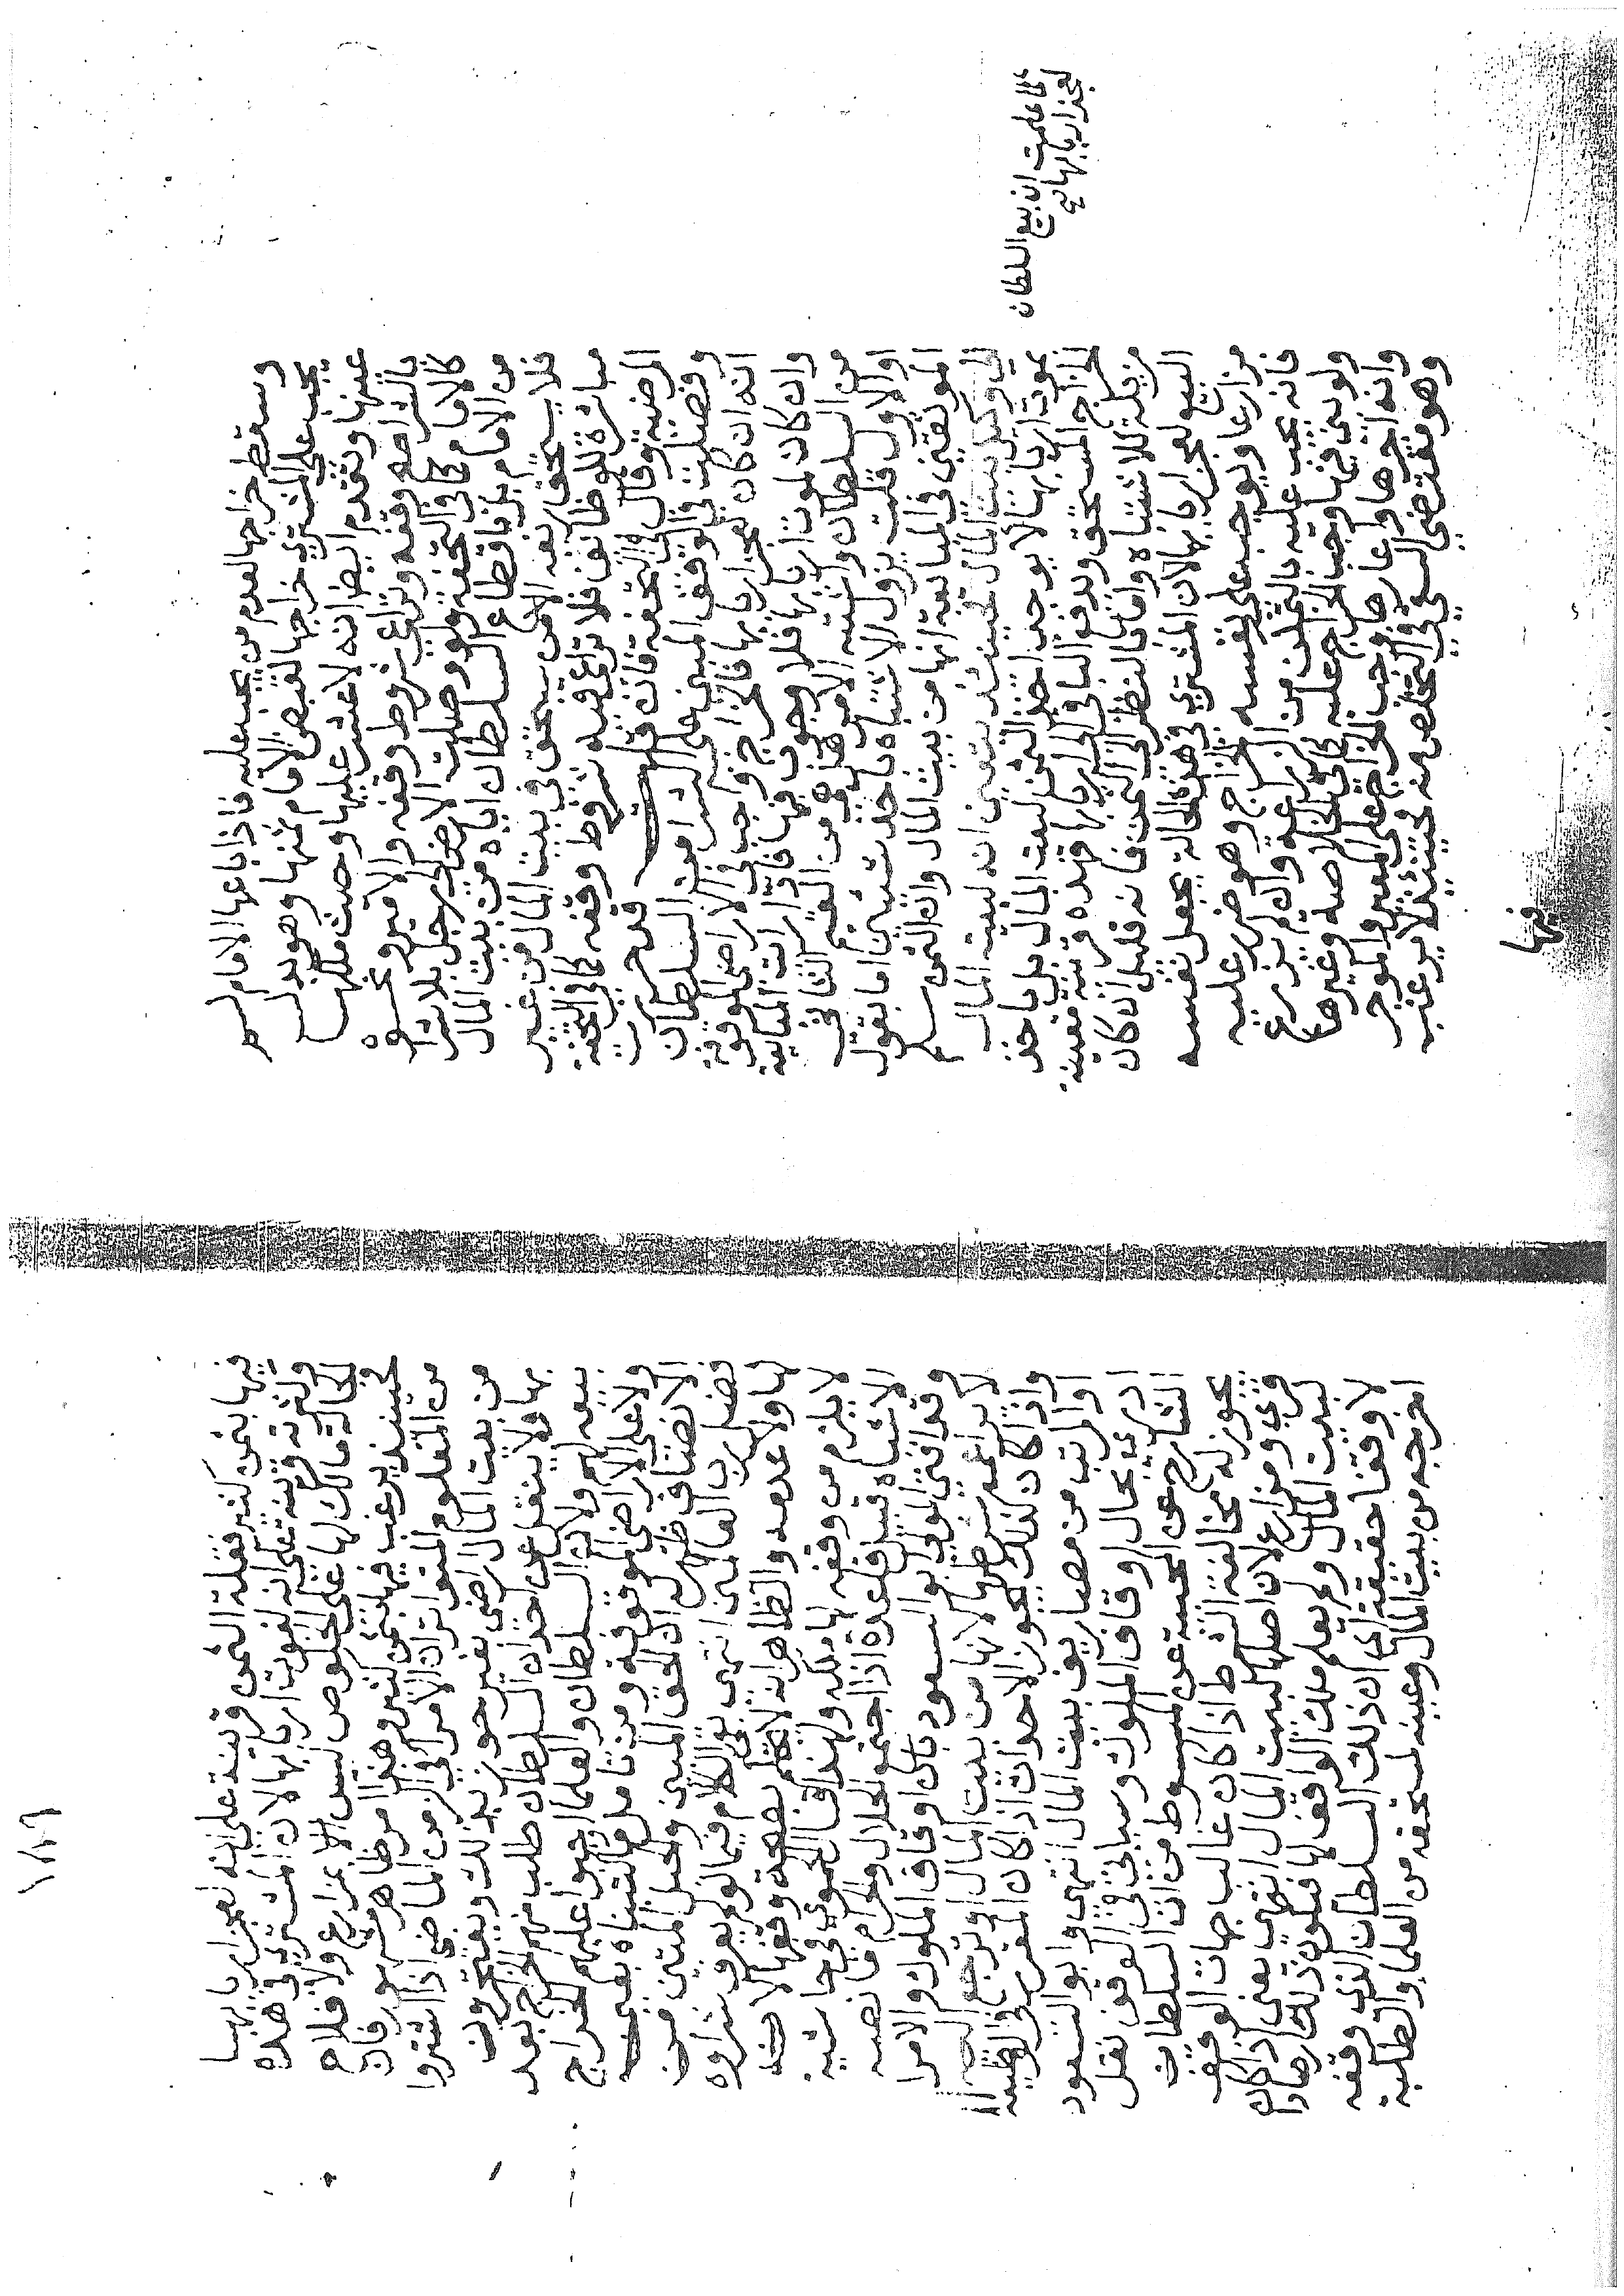 وسقط خراجها لعدم من يجب عليه فاذا باعها الامام لم
يجب على المشتري خراجها لقبض الامام ثمنها وهو بدل
عينها وتقدم ايضا انه لا عشر عليها وحيث ملكها
بالشرا صح وقفه وتراعى شروط وقفه والامير وغيره
كالامام كما في التحفة ولو وصلت الارض لرجل بلا شرا
من الامام بل باقطاع السلطان اياه من بيت المال
فلا يستحق ريعه الا من يستحق في بيت المال من غير
مباشرة للوظائف فلا تراعى فيه شروط وقفه كما في التحفة
المرضية وقال في التحفة فان قلت قد حررت
وفصلت في الوقف المبني على الشرا من السلطان
انه ان كان لعجز اربابها فالخراج واجب في الاراضي الموقوفة
وان كان لموت اربابها فلا وجوب فيها فاذا رات المبايعة
من السلطان واشتبه الامر هل هي من القسم الثاني
او الاول قلت يزول الاشتباه باحد شيئين اما بقول
الموثقين في المبايعة انها من بيت المال وان الثمن سلم
لوكيل بيت المال فحينئذ يتعين انه لبيت المال
بموت اربابها لا يوجب اخذ الثمن لبيت المال بل ياخذ
الخراج المستحق ويدفع الباقي لاربابها فهذه قرينة معينة
مزيلة للاشتباه واما بالنظر الى الثمن فانه قليل ان كان
البيع لعجز اربابها لان المشتري في هذه الحالة يجعل نفسه
مزارعا ويوجب على نفسه الخراج وهو ضرر عليه
فانه يجب عليه بالتمكن من الزراعة وان لم يزرع
ولو بنى فيها وجب الخراج عليه كما في الخلاصة وغيرها
وانه اجرها او اعارها وجب الخراج على المعير والموجر
وهو مقتضي السعي في التخلص منه فحينئذ لا يرغب
فيها
لما علمت ان بيع السلطان
لعجز اربابها
١٨٦
فيها بثمن كثير فقلة الثمن قرينة على انه لعجز اربابها
وكثرته قرينة على انه لموت اربابها لان المشتري في هذه
الحالة مالك لها على الخلوص ليس الا مزارع ولا فلاح
فحينئذ يرغب فيها بثمن كثير وهذا امر ظاهر متنور فان
من المعلوم المتواتر ان الامرا في الزمن الماضي اذا اشتروا
من بيت المال اراضي بغير حوز بذلك ويفتخرون
بها ولا ينقل عن احد ان السلطان طلب منهم الخراج بعد
بيعه لهم ولا ان السلطان والعلما اوجبوا عليهم الخراج
ولا على الاراضي الموقوفة ومن تامل في اشتباه بعين
الانصاف ظهر له ان الحق المبين والحبل المتين من
فضل رب العالمين انتهى بقي الكلام فيما لو لم يعرف شراوه
لها ولا عدمه والظاهر انه لا يحكم بصحة وقفها لانه
لا يلزم من وقفه لها ملكه ولهذا قال الحموي في حاشية
الاشباه قبيل قاعدة اذا اجتمع الحلال والحرام ما نصه
وقد افتى المولى ابو السعود بان اوقاف الملوك والامرا
لا يراعى شرطها لانها من بيت المال او ترجع اليه
واذا كان كذلك يجوز الاحداث اذا كان المقرر في الوظيفة
او المرتب من مصاريف بيت المال انتهى وابو السعود
ادرى بحال اوقاف الملوك وسياتي في الوقف نقل
الشارح عن المحبية عن المبسوط من ان السلطان
يجوز له مخالفة الشرط اذا كان غالب جهات الوقف
قرى ومزارع لان اصلها لبيت المال انتهى يعني اذا كان
لبيت المال ولم يعلم ملك الواقف لها فيكون ذلك ارصادا
لا وقفا حقيقة اي ان ذلك السلطان الذي وقفه
اخرجه من بيت المال وعينه لمستحقه من العلما والطلبة